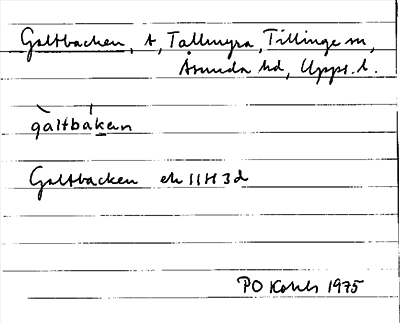 Galtbacken, t, Tallmyra, Tillinge sn,
Åsunda hd, Upps. l.
gàltbák̲en
Galtbacken ek 11H 3d
PO Kohls 1975